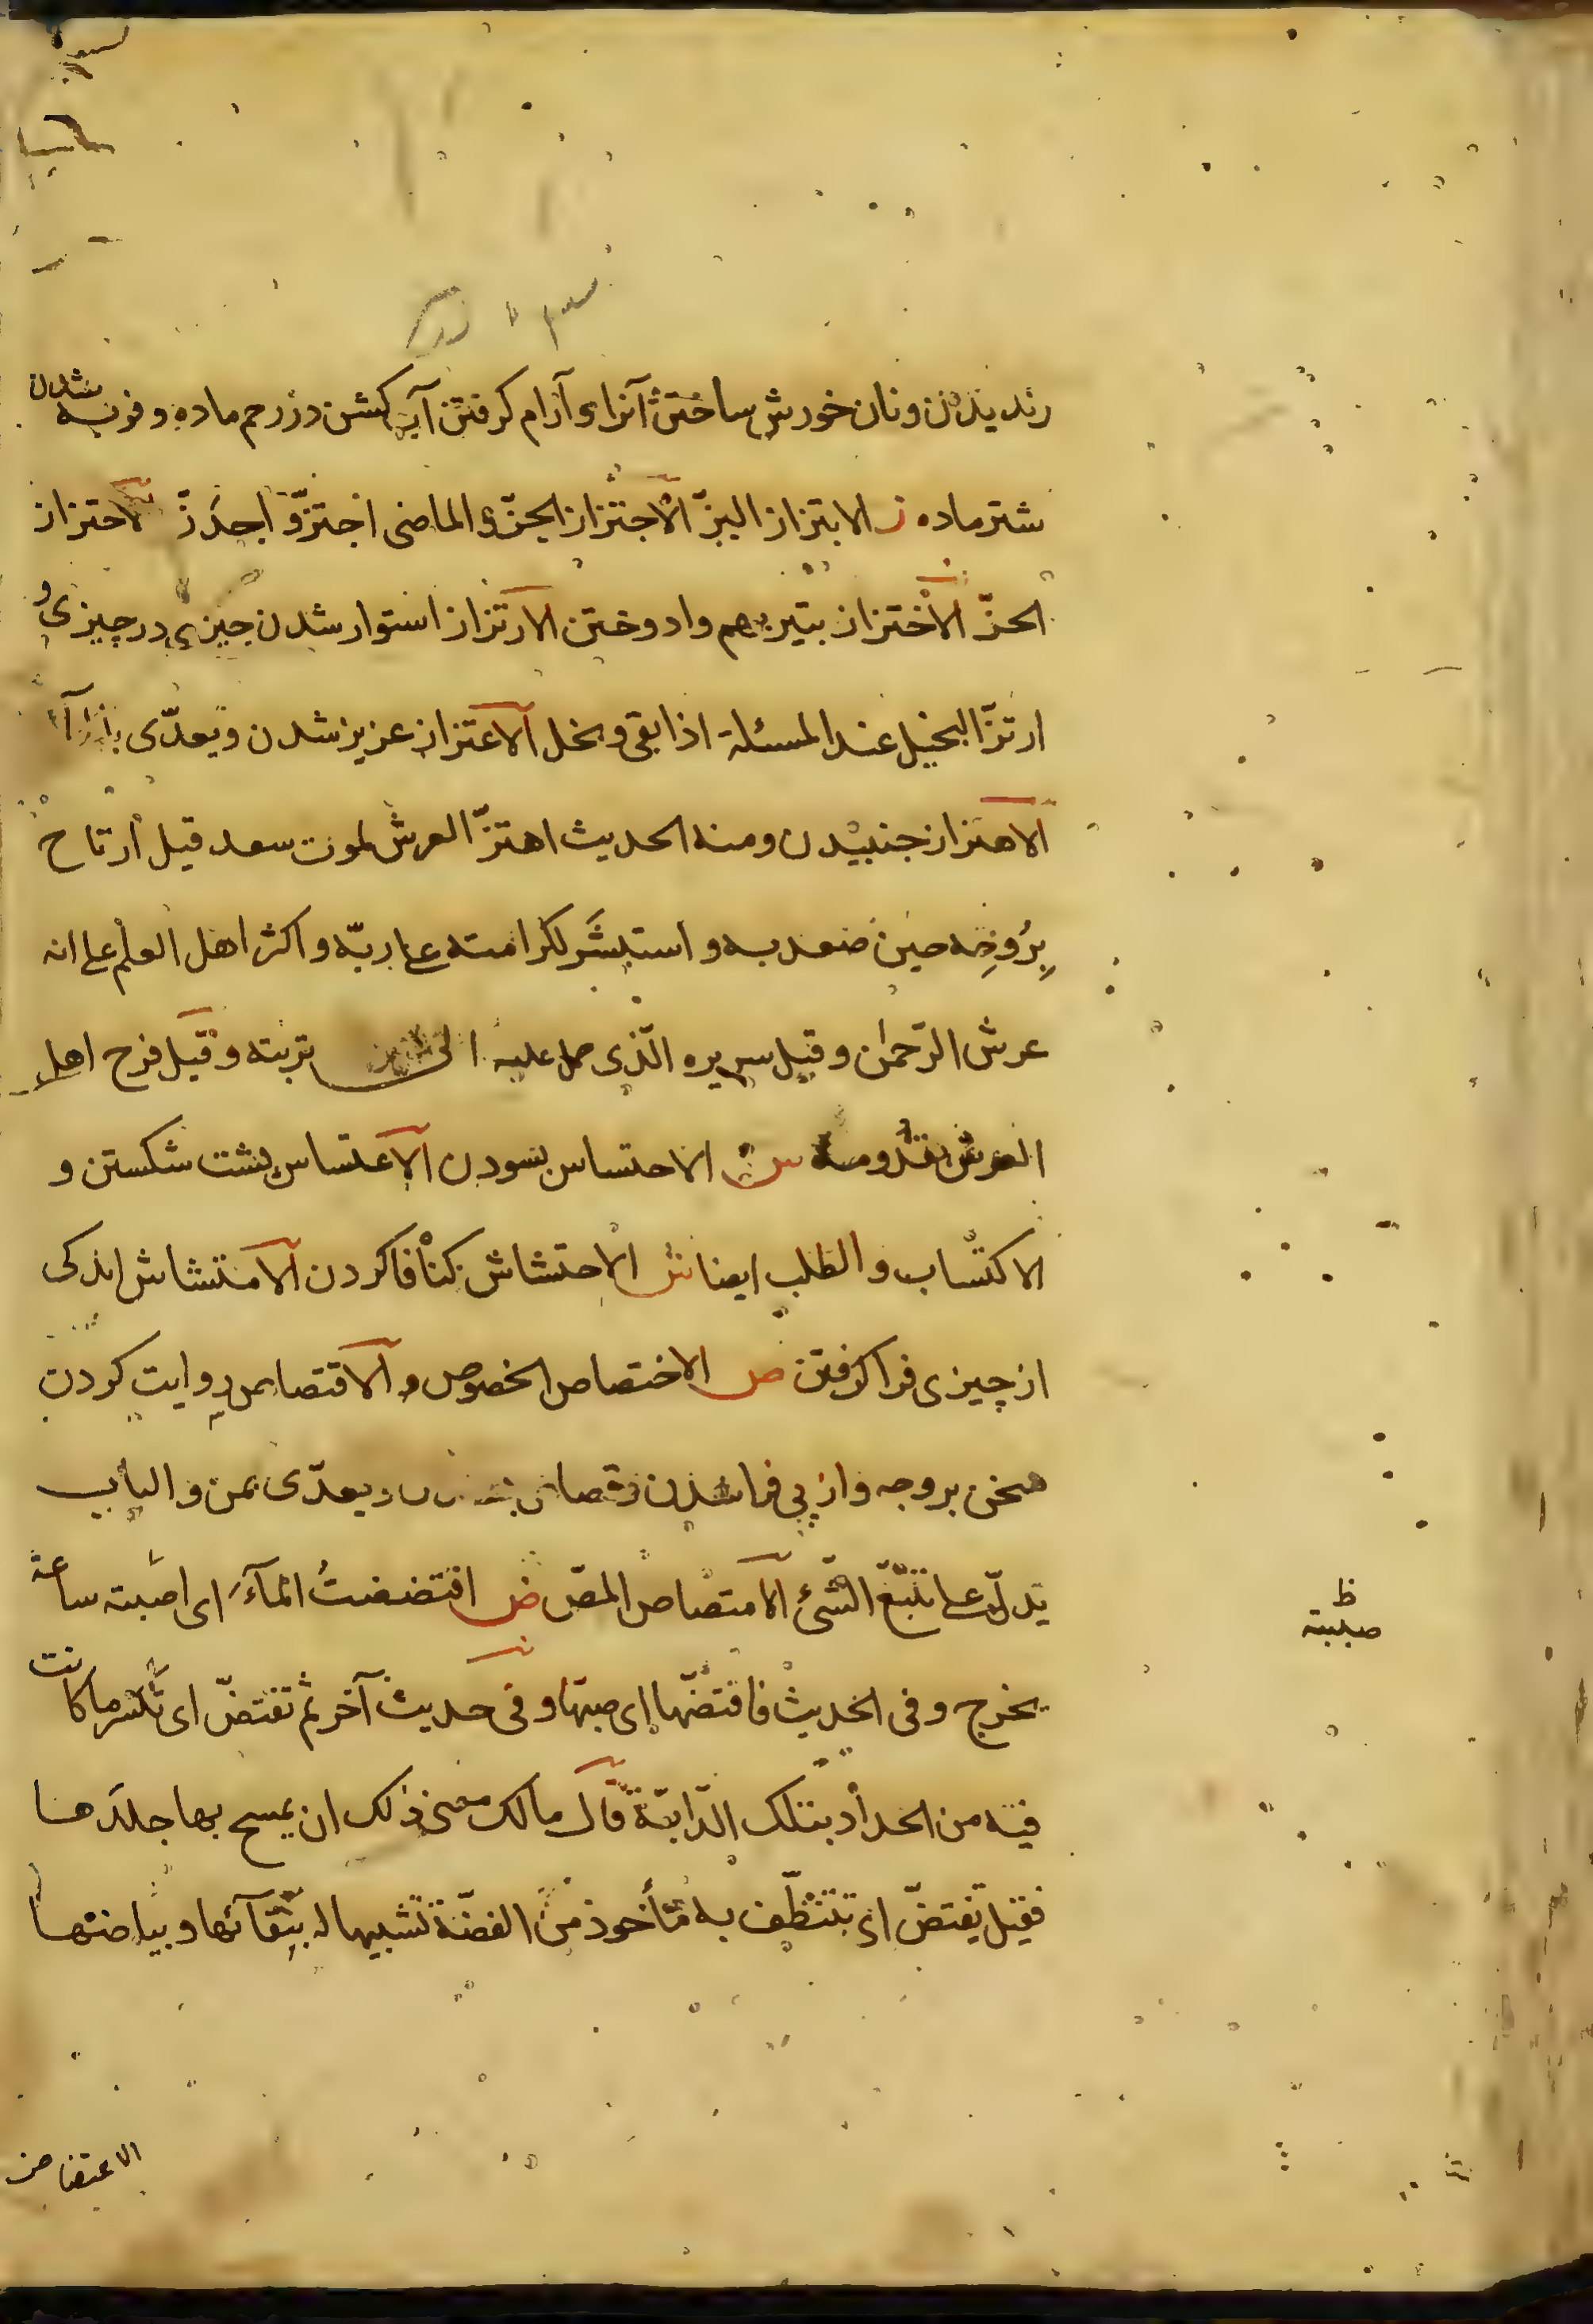 رندیدن ونان خورش ساختن آنرا و آرام کرفتن آب کشن در رحم ماده و فربه شدن
شتر ماده ز الابتزاز البزّ الاجتزاز الجزّ و الماضی اجتزّ و اجدزّ الاحتزاز
الحزّ الاختزاز بتیر بهم وادوختن الارتزاز استوار شدن چیزی در چیزی و
ارتزّ البخیل عند المسئلة اذا بقی وبخل الاعتزاز عزیز شدن ویعدّی
الاهتزاز جنبیدن ومنه الحدیث اهتزّ العرش لموت سعد قیل ارتاح
بِرُوحِه حین صعد به و استبشَر لکرامته علی ربّه و اکثر اهل العلم علی انه
عرش الرّحمٰن وقیل سریره الّذی حمل علیه الی تربته وقیل فرح اهل
العرش بقدومه س الاحتساس بسودن الاعتساس بشت شکستن و
الاکتساب و الطلب ایضا ش الاحتشاش کیا فا کردن الامتشاش اندکی
از چیزی فرا کرفتن ص الاختصاص الخصوص و الاقتصاص روایت کردن
سخن بر وجه و از پی فرا شدن وقصاص ویعدّی بمن و الباب
یدلّ علی تتبّع الشّیٔ الامتصاص المصّ ض افتضضتُ المآءَ ای اصبته ساعة
یخرج وفی الحدیث فافتضّها ای صبّها وفی حدیث آخر ثم تفتضّ ای تکسر ما کانت
فیه من الحداد بتلک الدّابّة قال مالک معنی ذلک ان یمسح بها جلدها
فقیل یفتضّ ای تتنظّف به مأخوذ من الفضّة تشبیها له بنقآئها و بیاضها
ظ
صببته
الاعتضاض